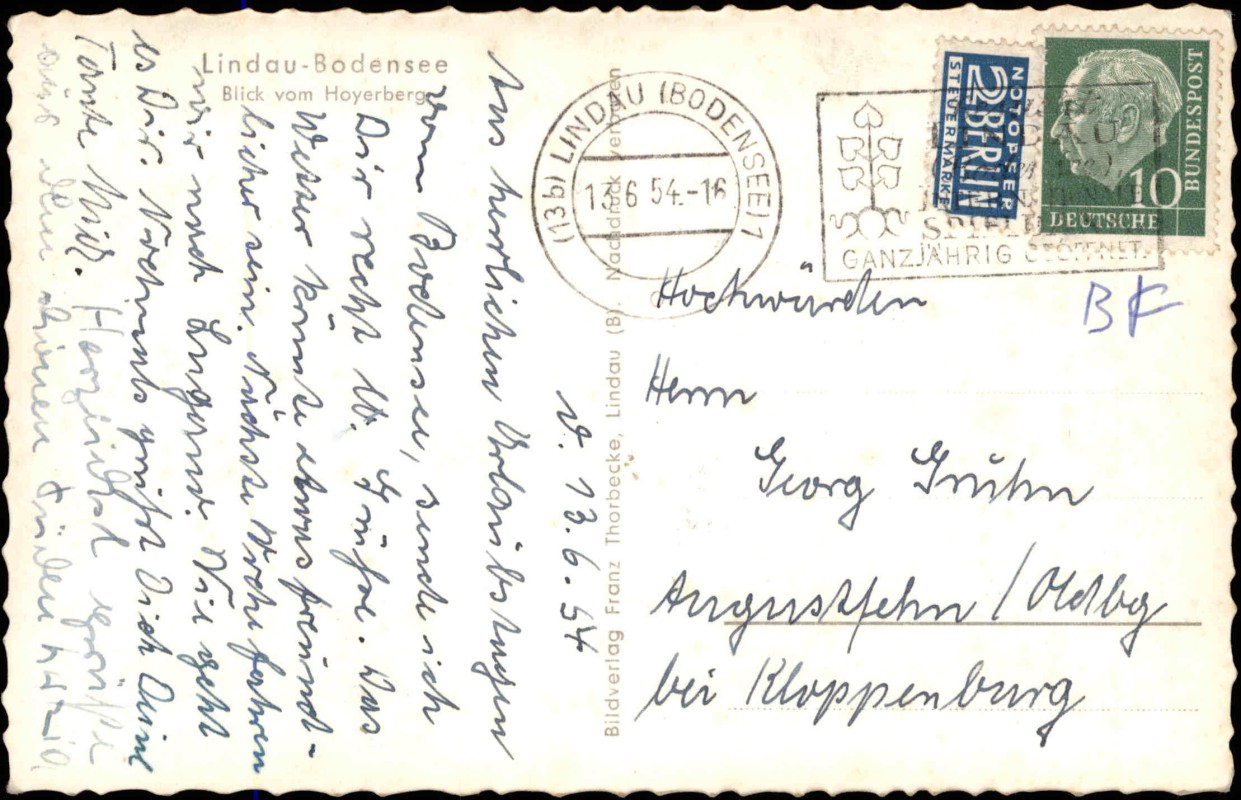 Lindau-Bodensee
Blick vom Hoyerberg
d. 13.6.54
Aus herrlichen Urlaubstagen
vom Bodensee, sende ich
Dir recht lb. Grüße. Das
Wetter könnte etwas freund-
licher sein. Nächste Woche fahren
wir nach Lugano. Wie geht
es Dir. Nochmals grüßt Dich Deine
Tante Mia. Herzlichst grüßt
auch
Bildverlag Franz Thorbecke, Lindau (B). Nachdruck verboten
(13b) LINDAU (BODENSEE) 1
13.6.54.-16
GANZJÄHRIG GEÖFFNET.
NOTOPFER
2 BERLIN
STEUERMARKE
10
DEUTSCHE
BUNDESPOST
BF
Hochwürden
Herrn
Georg Gruhn
Augustfehn / Oldbg
bei Kloppenburg